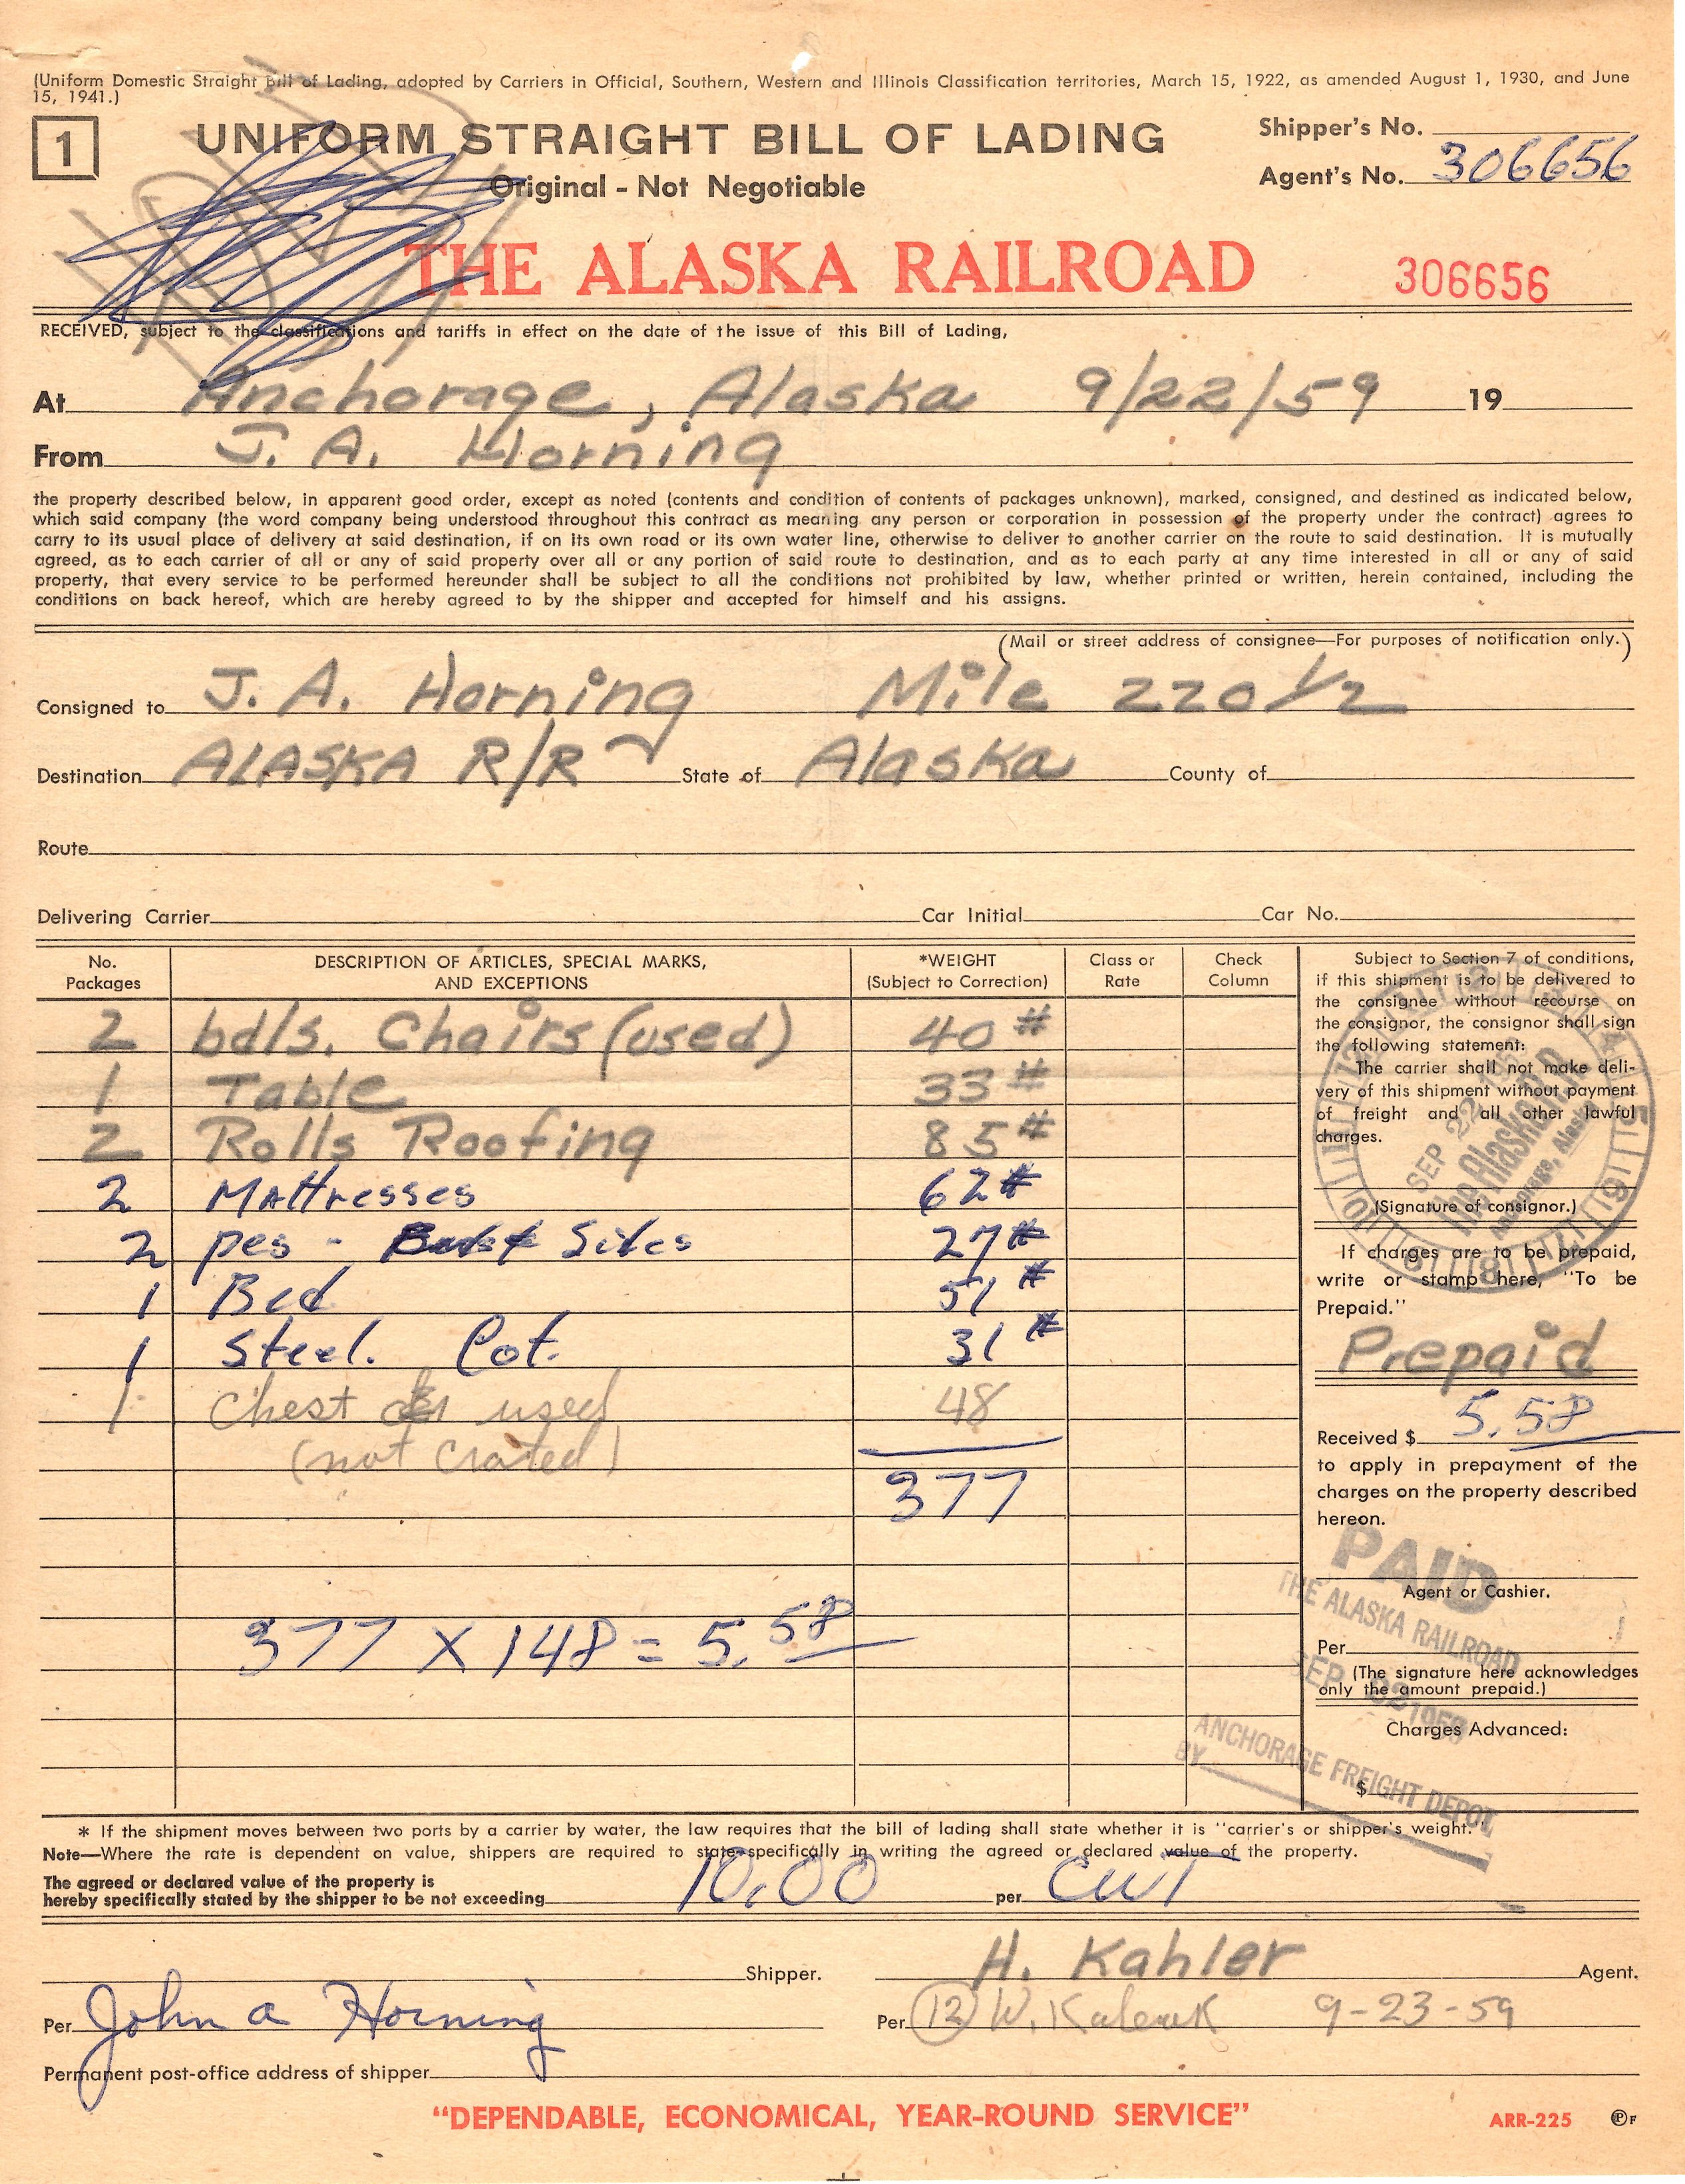 (Uniform Domestic Straight Bill of Lading, adopted by Carriers in Official, Southern, Western and Illinois Classification territories, March 15, 1922, as amended August 1, 1930, and June
15, 1941.)
1
UNIFORM STRAIGHT BILL OF LADING
Original - Not Negotiable
Shipper's No.
Agent's No. 306656
THE ALASKA RAILROAD
306656
RECEIVED, subject to the classifications and tariffs in effect on the date of the issue of this Bill of Lading,
At Anchorage, Alaska 9/22/59 19
From J. A. Horning
the property described below, in apparent good order, except as noted (contents and condition of contents of packages unknown), marked, consigned, and destined as indicated below,
which said company (the word company being understood throughout this contract as meaning any person or corporation in possession of the property under the contract) agrees to
carry to its usual place of delivery at said destination, if on its own road or its own water line, otherwise to deliver to another carrier on the route to said destination. It is mutually
agreed, as to each carrier of all or any of said property over all or any portion of said route to destination, and as to each party at any time interested in all or any of said
property, that every service to be performed hereunder shall be subject to all the conditions not prohibited by law, whether printed or written, herein contained, including the
conditions on back hereof, which are hereby agreed to by the shipper and accepted for himself and his assigns.
(Mail or street address of consignee—For purposes of notification only.)
Consigned to J. A. Horning Mile 220 1/2
Destination ALASKA R/R State of Alaska County of
Route
Delivering Carrier Car Initial Car No.
No. Packages
DESCRIPTION OF ARTICLES, SPECIAL MARKS,
AND EXCEPTIONS
*WEIGHT
(Subject to Correction)
Class or
Rate
Check
Column
2 bdls. Chairs (used) 40 #
1 Table 33 #
2 Rolls Roofing 85 #
2 Mattresses 62 #
2 pes - Sides 27 #
1 Bed 51 #
1 Steel. Cot. 31 #
1 Chest used 48
(not Crated)
377
377 X 148 = 5.58
Subject to Section 7 of conditions,
if this shipment is to be delivered to
the consignee without recourse on
the consignor, the consignor shall sign
the following statement:
The carrier shall not make deli-
very of this shipment without payment
of freight and all other lawful
charges.
(Signature of consignor.)
SEP 22
The Alaska R.R.
Anchorage, Alaska
If charges are to be prepaid,
write or stamp here, "To be
Prepaid."
Prepaid
Received $ 5.58
to apply in prepayment of the
charges on the property described
hereon.
PAID
THE ALASKA RAILROAD
ANCHORAGE FREIGHT DEPOT
BY
Agent or Cashier.
Per
(The signature here acknowledges
only the amount prepaid.)
Charges Advanced:
$
* If the shipment moves between two ports by a carrier by water, the law requires that the bill of lading shall state whether it is "carrier's or shipper's weight."
Note—Where the rate is dependent on value, shippers are required to state specifically in writing the agreed or declared value of the property.
The agreed or declared value of the property is
hereby specifically stated by the shipper to be not exceeding 10.00 per CWT
Shipper. H. Kahler Agent.
Per John A Horning Per (12) W. 9-23-59
Permanent post-office address of shipper
"DEPENDABLE, ECONOMICAL, YEAR-ROUND SERVICE"
ARR-225 Ⓟ F